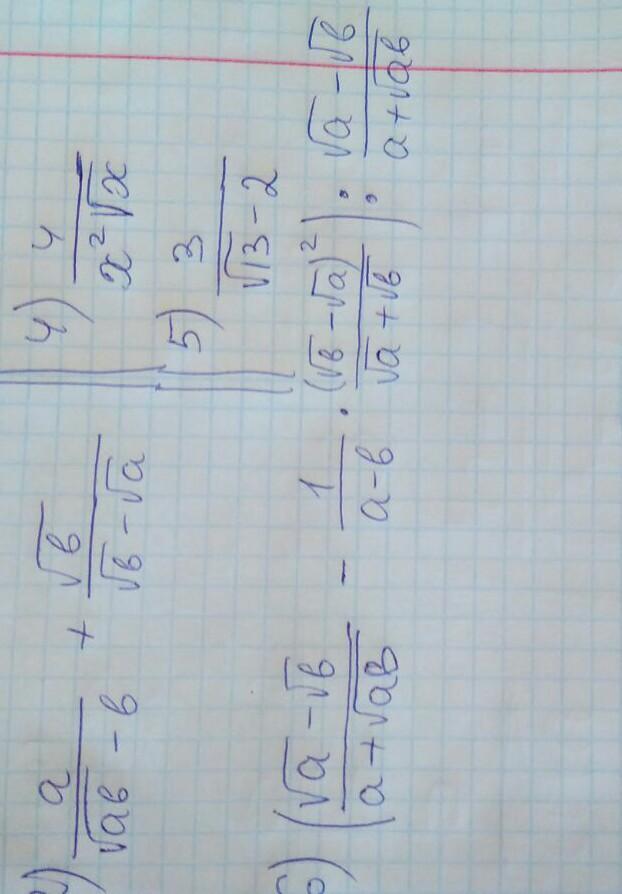 a/(√ab - b) + √b/(√b - √a)
4) 4/(x²√x)
5) 3/(√13 - 2)
((√a - √b)/(a + √ab) - 1/(a - b) · (√b - √a)²/(√a + √b)) : (√a - √b)/(a + √ab)